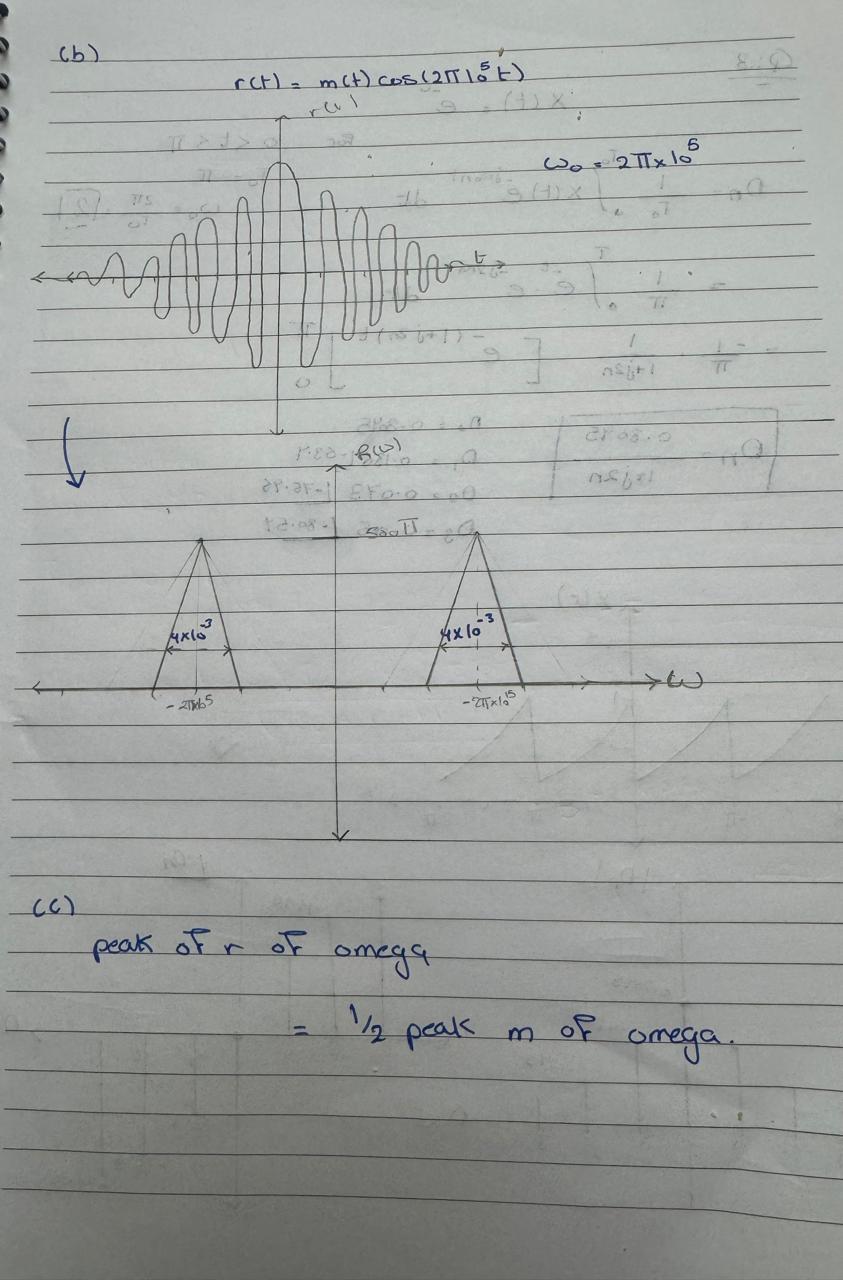 (b)
r(t) = m(t) cos(2π10⁵t)
r(t)
ω₀ = 2π×10⁵
t
R(ω)
500π
4×10⁻³
4×10⁻³
ω
-2π×10⁵
-2π×10⁵
(c)
peak of r of omega
= 1/2 peak m of omega.